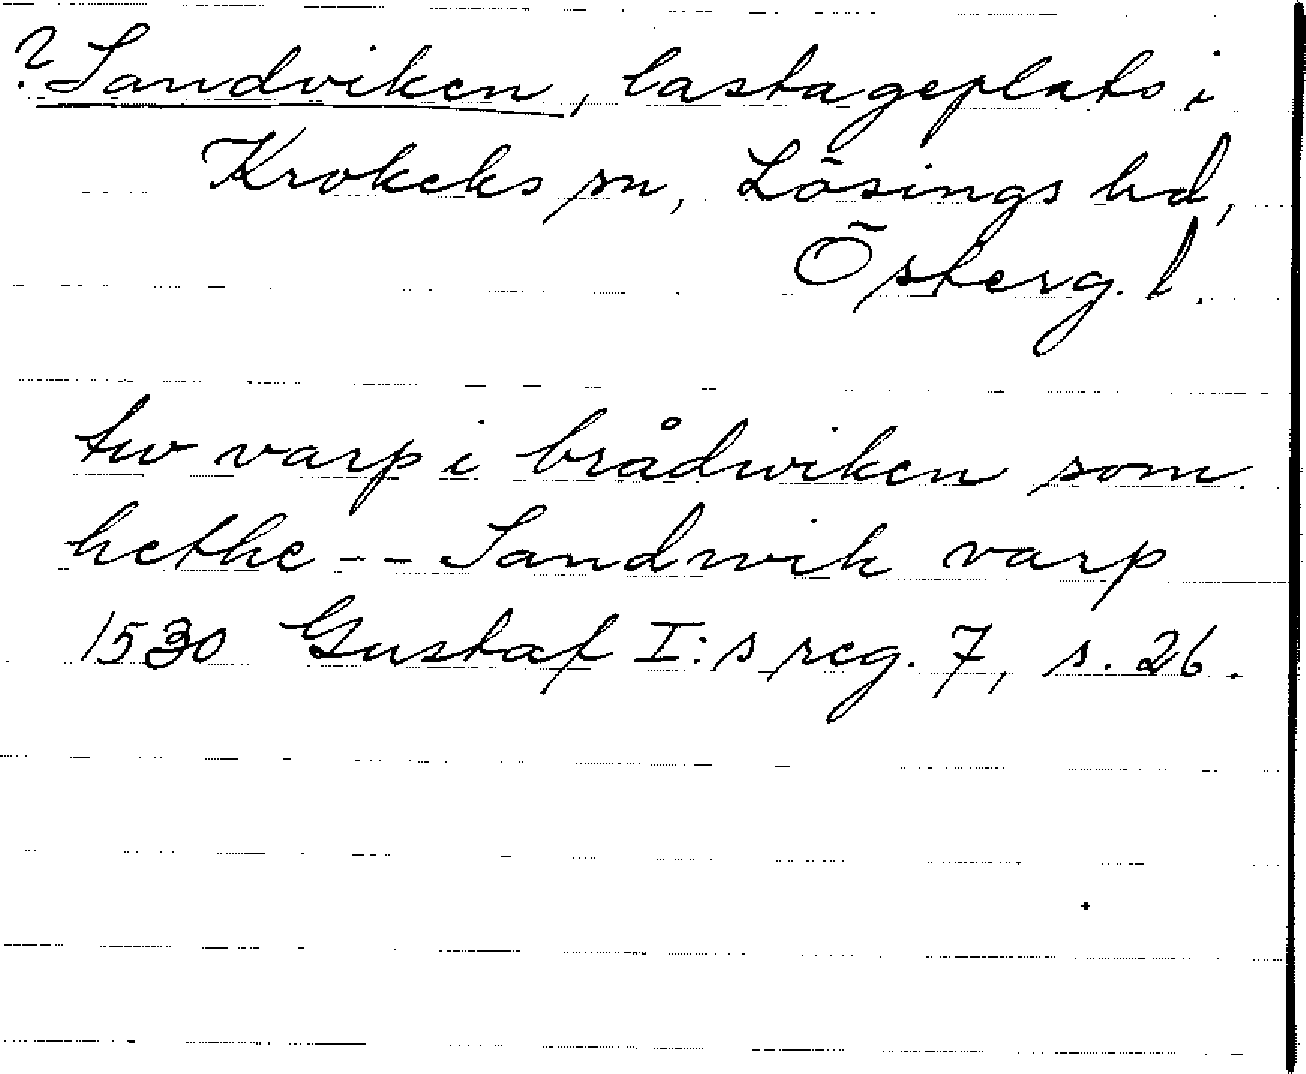 ? Sandviken, lastageplats i
Krokeks sn, Lösings hd,
Österg. l.
tw varp i brådwiken som
hethe -- Sandwik varp
1530 Gustaf I:s reg. 7, s. 26.